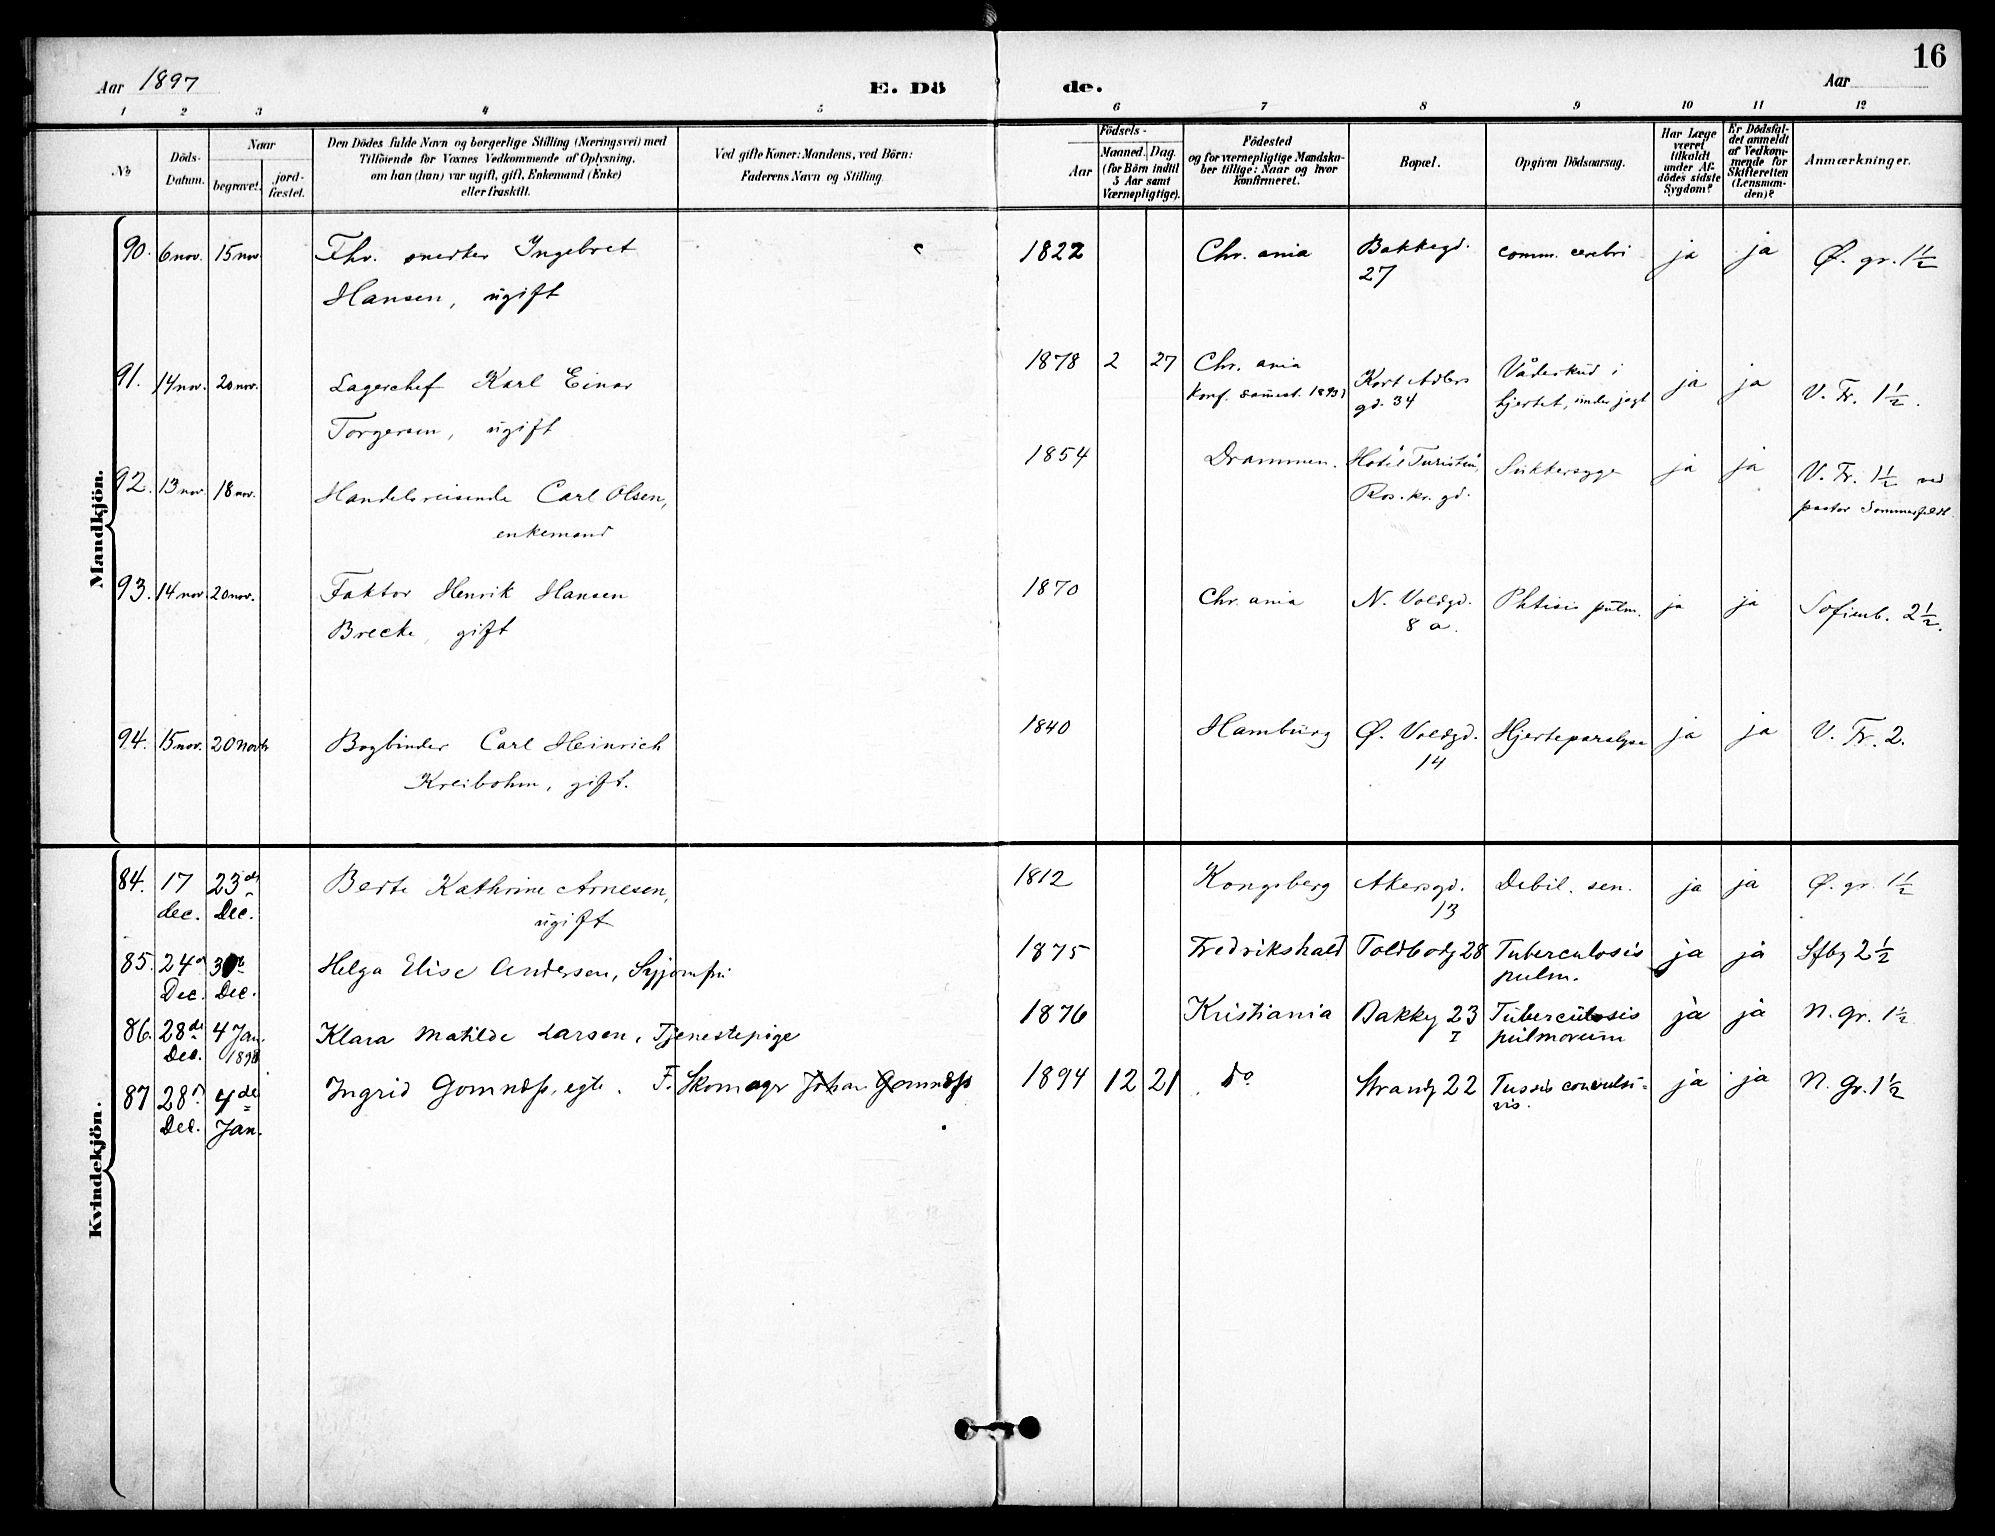 16
Aar 1897
E. Dö
de.
Aar
1 2 3 4 5 6 7 8 9 10 11 12
No
Döds-
Datum.
Naar
begravet.
jord-
fæstet.
Den Dödes fulde Navn og borgerlige Stilling (Næringsvei) med
Tilföiende for Voxnes Vedkommende af Oplysning,
om han (hun) var ugift, gift, Enkemand (Enke)
eller fraskilt.
Ved gifte Koner: Mandens, ved Börn:
Faderens Navn og Stilling.
Födsels-
Aar
Maaned. Dag.
(for Börn indtil
5 Aar samt
Værnepligtige).
Födested
og for værnepligtige Mandska-
ber tillige: Naar og hvor
konfirmeret.
Bopæl.
Opgiven Dödsaarsag.
Har Læge
været
tilkaldt
under Af-
dödes sidste
Sygdom?
Er Dödsfal-
det anmeldt
af Vedkom-
mende for
Skifteretten
(Lensman-
den)?
Anmærkninger.
Mandkjön.
90. 6 nov. 15 nov. Fhv. snedker Ingebret 1822 Chr. ania Bakkegd. comm. cerebri ja ja Ø. gr. 1½
Hansen, ugift 27
91. 14 nov. 20 nov. Lagerchef Karl Einar 1878 2 27 Chr. ania Kort Adlers Vådeskud i ja ja V. Fr. 1½.
Torgersen, ugift Konf. 1893 gd. 34 hjertet, under jagt
92. 13 nov. 18 nov. Handelsreisende Carl Olsen, 1854 Drammen. Hotel "Turisten", Sukkersyge ja ja V. Fr. 1½ ved
enkemand Ros. kr. gd. pastor Sommerfeldt.
93. 14 nov. 20 nov. Faktor Henrik Hansen 1870 Chr. ania N. Voldgd. Phtisis pulm. ja ja Sofienb. 2½.
Brecke, gift 8 a.
94. 15 nov. 20 nov. Bogbinder Carl Heinrich 1840 Hamburg Ø. Voldgd. Hjerteparalyse ja ja V. Fr. 2.
Kreibohm, gift. 14
Kvindekjön.
84. 17 23de Berte Kathrine Arnesen, 1812 Kongsberg Akersgd. Debil. sen. ja ja Ø. gr. 1½
dec. Dec. ugift 13
85. 24de Helga Elise Andersen, Syjomfru 1875 Fredrikshald Toldbodg 28 Tuberculosis ja ja Sfbg 2½
Dec. Dec. pulm.
86. 28de 4 Jan. Klara Matilde Larsen, Tjenestepige 1876 Kristiania Bakkg 23 Tuberculosis ja ja N. Gr. 1½
Dec. 1898 I pulmorum
87 28de 4de Ingrid Gomnæss, egte. F. Skomager Johan Gomnæss 1894 12 21 do Strandg 22 Tussis convulsi- ja ja N. Gr. 1½
Dec. Jan. vis.